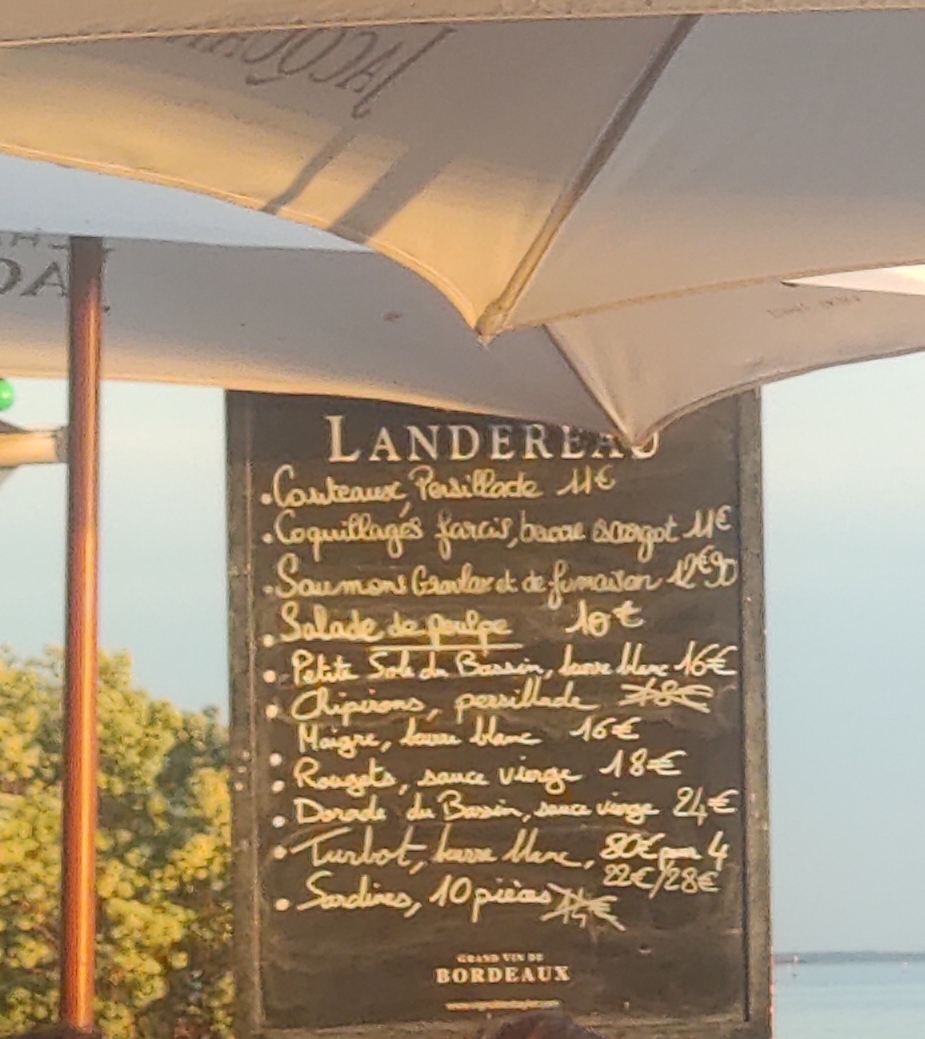 JACQUART
JAC
LANDEREAU
• Couteaux, Persillade 11€
• Coquillages farcis, beurre escargot 11€
• Saumons Gravlax et de fumaison 12€90
• Salade de poulpe 10€
• Petite Sole du Bassin, beurre blanc 16€
• Chipirons, persillade 18€
• Maigre, beurre blanc 16€
• Rougets, sauce vierge 18€
• Dorade du Bassin, sauce vierge 24€
• Turbot, beurre blanc, 80€ pour 4
22€/28€
• Sardines, 10 pièces 14€
GRAND VIN DE
BORDEAUX